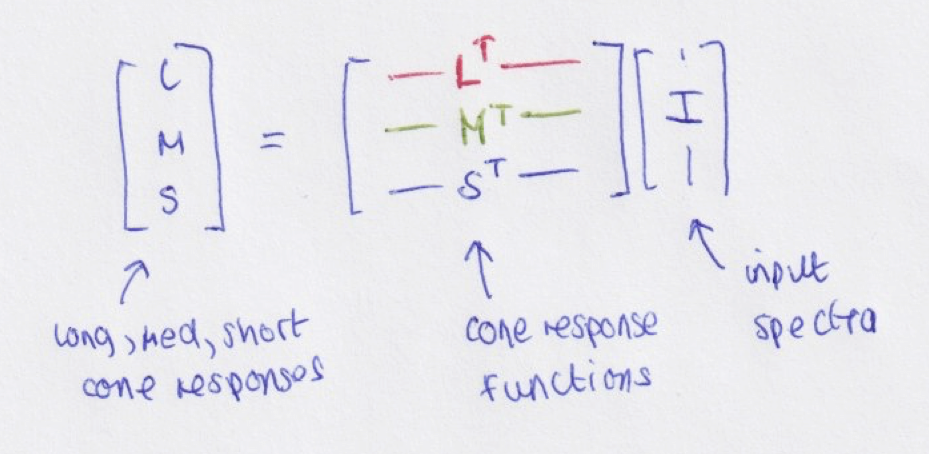 [L M S] = [— Lᵀ — — Mᵀ — — Sᵀ —] [| I |]
long, med, short
cone responses
cone response
functions
input
spectra